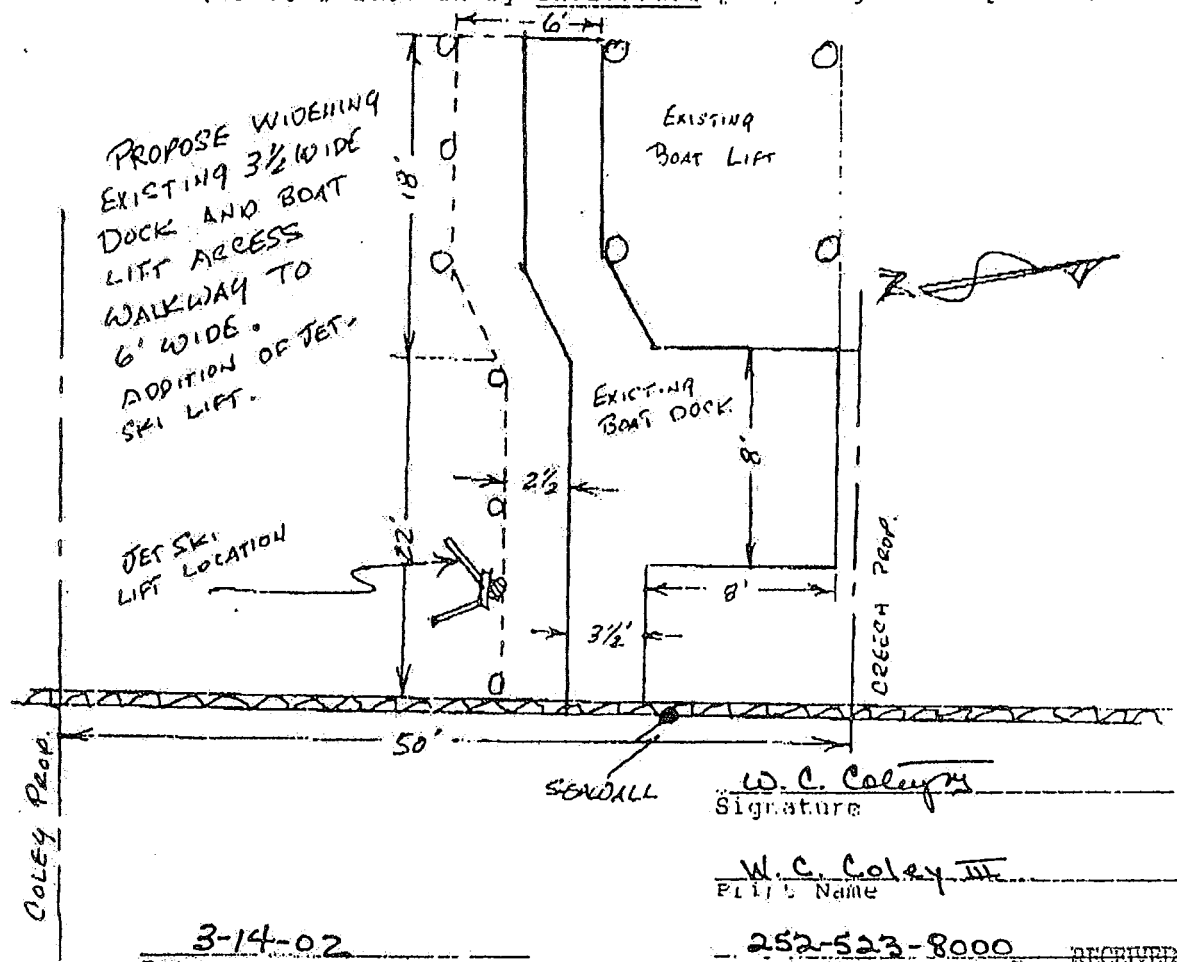 6'
PROPOSE WIDENING
EXISTING 3½ WIDE
DOCK AND BOAT
LIFT ACCESS
WALKWAY TO
6' WIDE.
ADDITION OF JET-
SKI LIFT.
18'
EXISTING
BOAT LIFT
Z
EXISTING
BOAT DOCK
8'
2½
JET SKI
LIFT LOCATION
22'
8'
3½'
CREECH PROP.
50'
SEAWALL
COLEY PROP.
W. C. Coley III
Signature
W. C. Coley III
Print Name
3-14-02
252-523-8000
RECEIVED